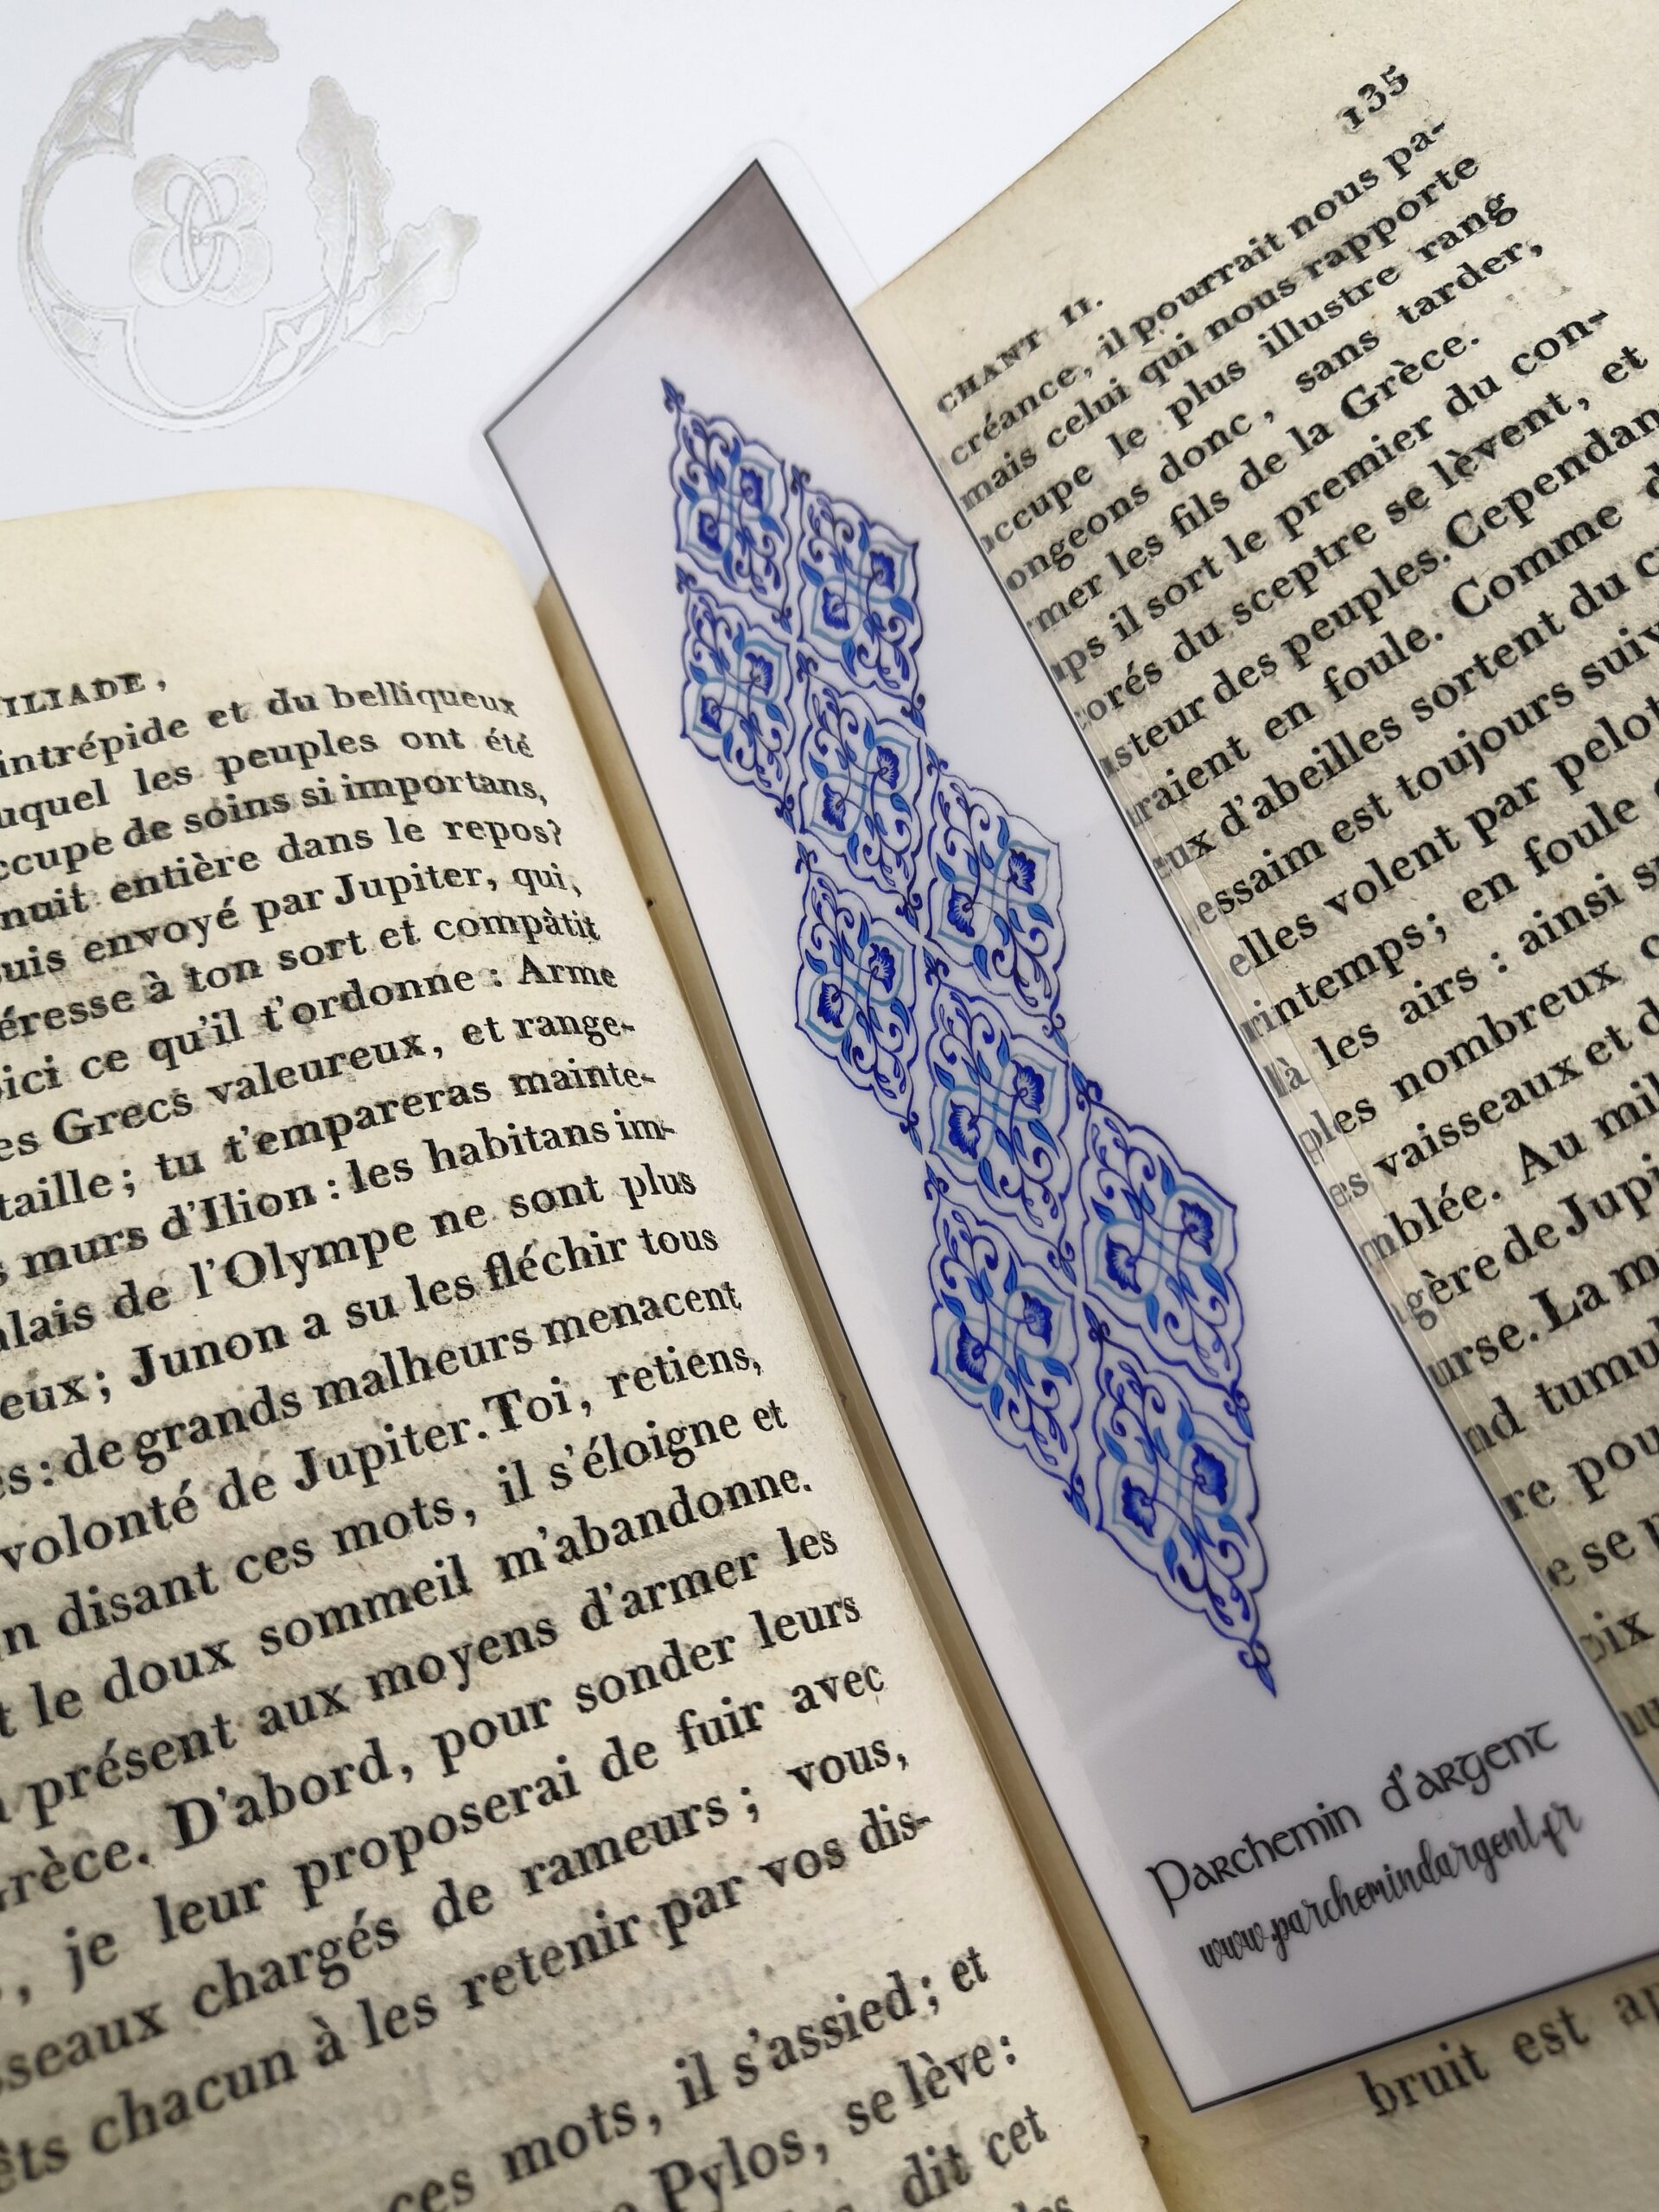 ILIADE,
intrépide et du belliqueux
les peuples ont été
de soins si importans,
nuit entière dans le repos?
envoyé par Jupiter, qui,
à ton sort et compâtit
ce qu'il t'ordonne : Arme
Grecs valeureux, et range-
; tu t'empareras mainte-
murs d'Ilion : les habitans im-
de l'Olympe ne sont plus
; Junon a su les fléchir tous
: de grands malheurs menacent
volonté de Jupiter. Toi, retiens,
disant ces mots, il s'éloigne et
le doux sommeil m'abandonne.
présent aux moyens d'armer les
D'abord, pour sonder leurs
, je leur proposerai de fuir avec
chargés de rameurs ; vous,
chacun à les retenir par vos dis-
ces mots, il s'assied ; et
Pylos, se lève :
dit cet
135
CHANT II.
créance, il pourrait nous pa-
mais celui qui nous rapporte
le plus illustre rang
donc, sans tarder,
les fils de la Grèce.
il sort le premier du con-
du sceptre se lèvent, et
des peuples. Cependant
en foule. Comme
d'abeilles sortent du
essaim est toujours
elles volent par
; en foule
les airs : ainsi
nombreux
vaisseaux et
Au
de
La
bruit est
Parchemin d'argent
www.parchemindargent.fr